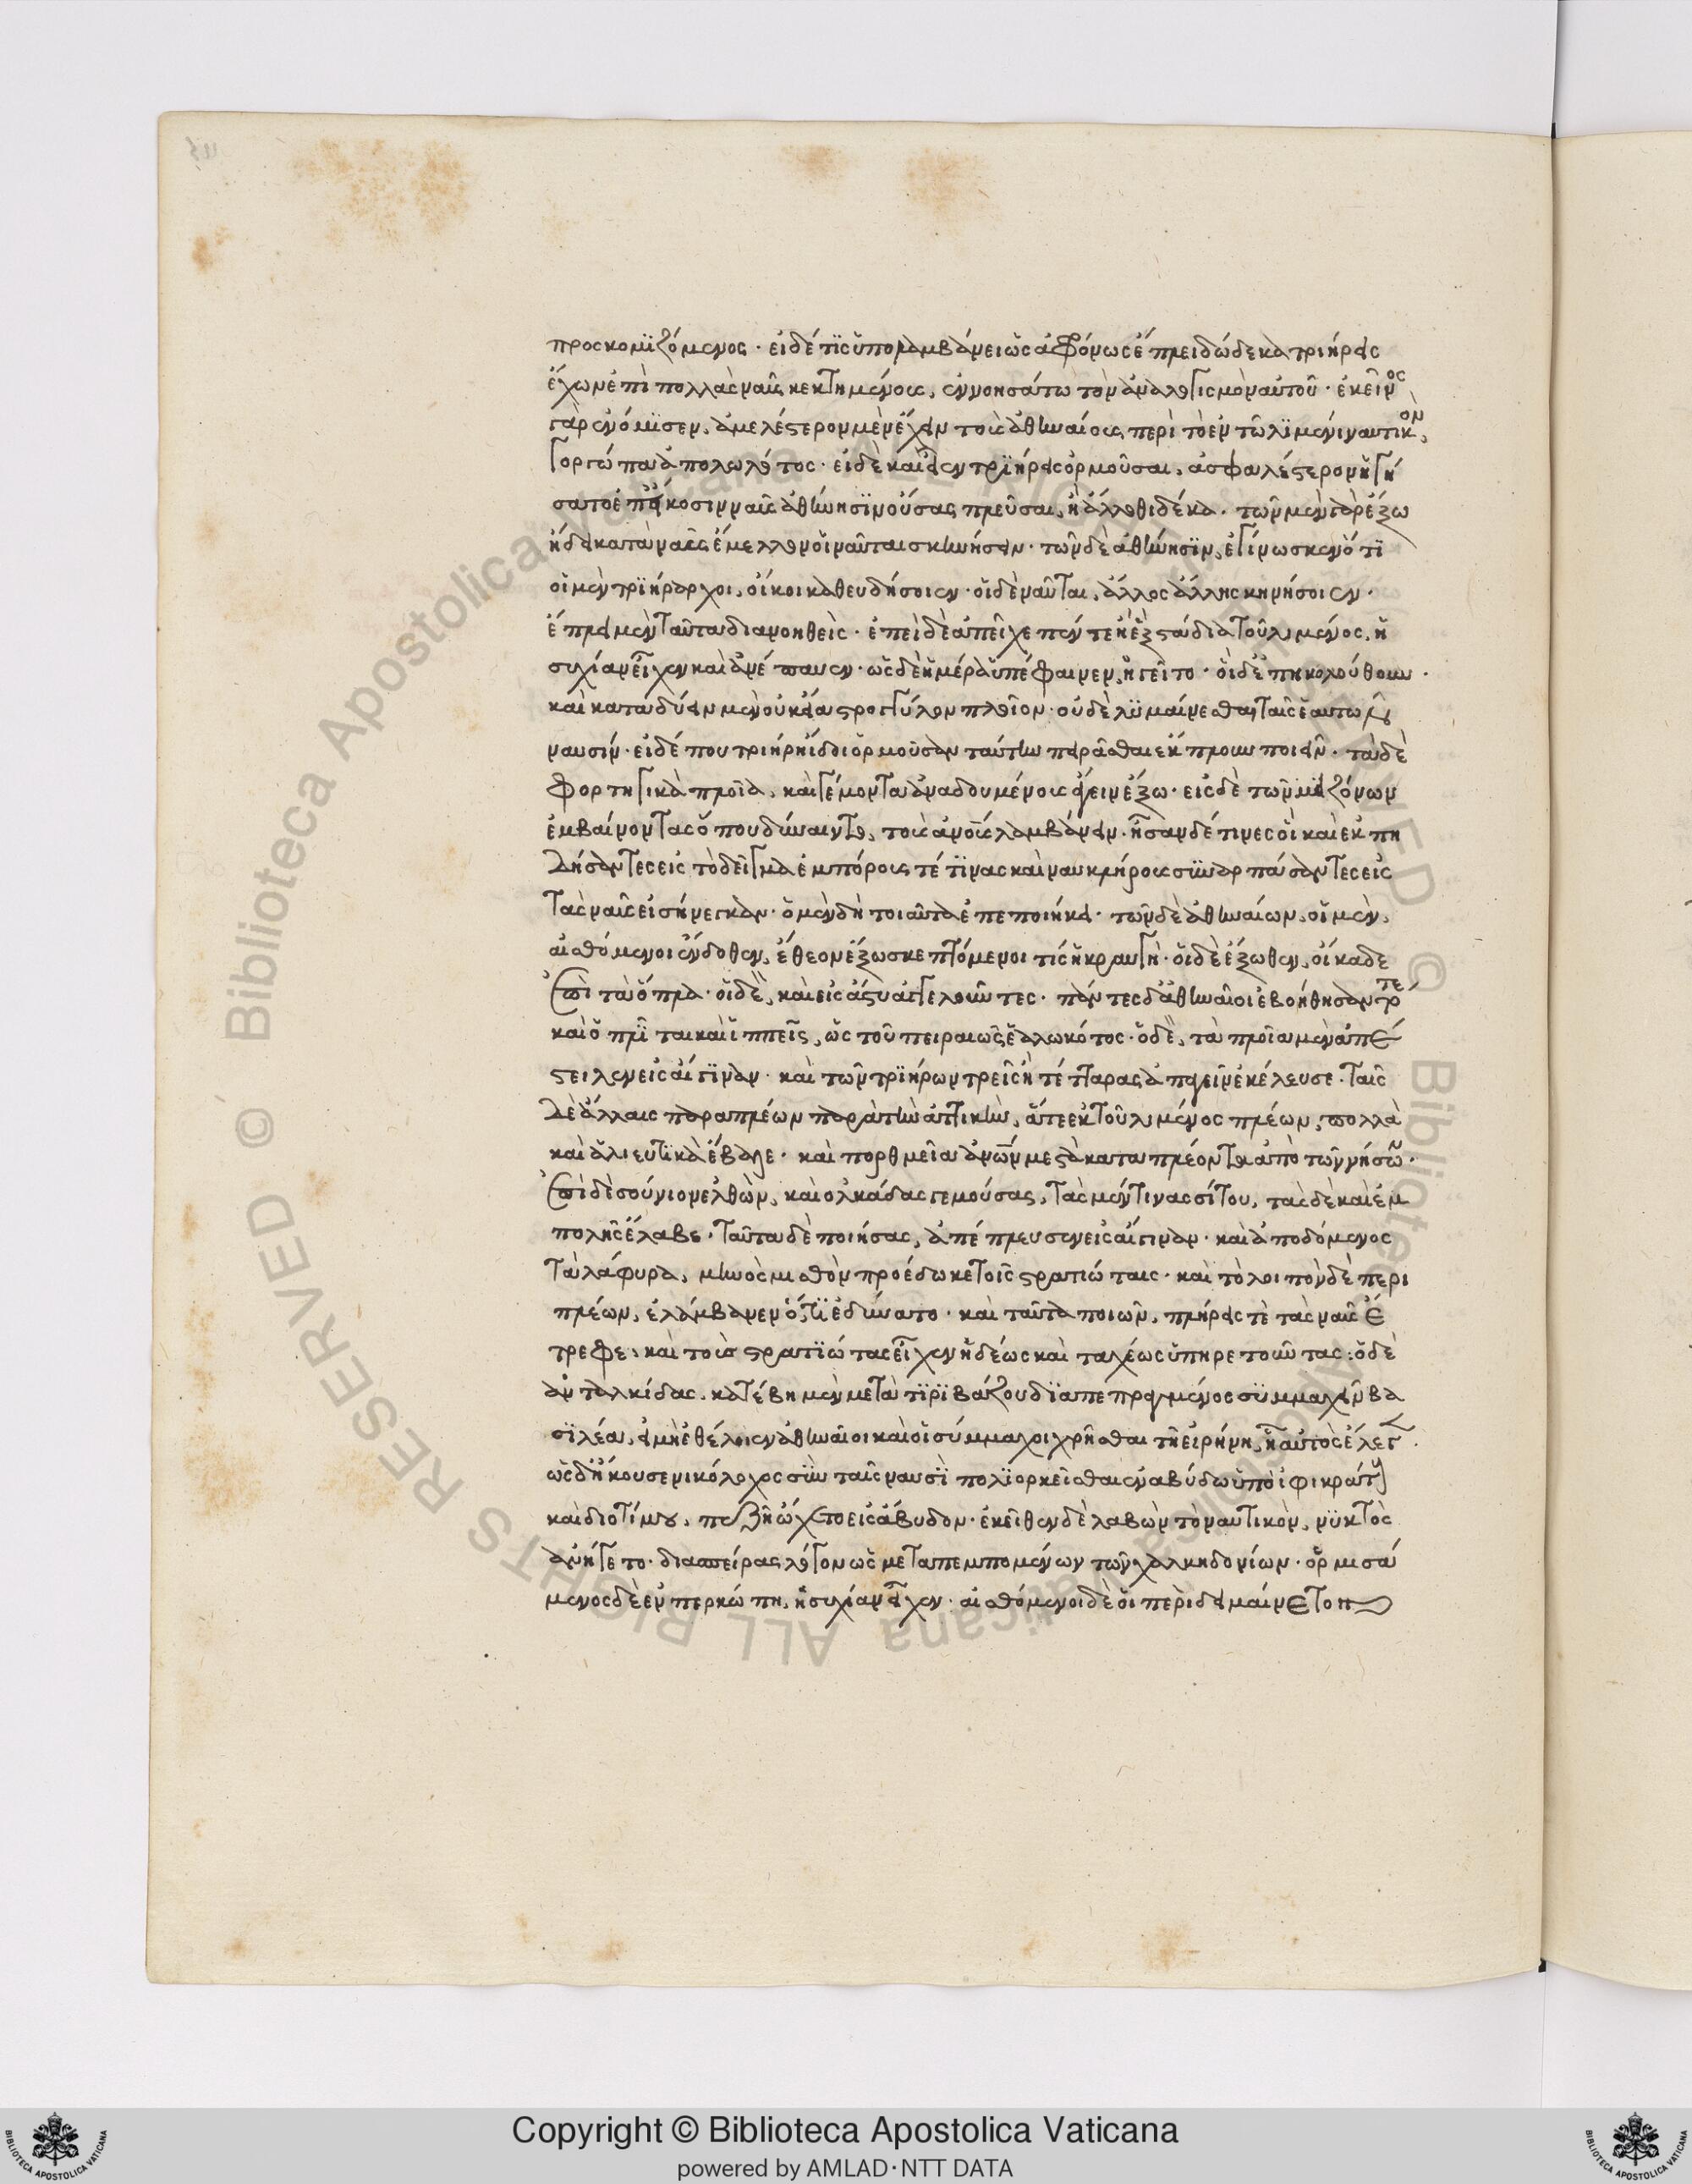 προσκομϊζόμενος · εἰδέ τϊς ὑπολαμβάνει ὡς ἀφρόνως ἔπλει δώδεκα τριήρεις
ἔχων ἐπὶ πολλὰς ναῦς κεκτημένοις, ἐννοησάτω τὸν ἀναλογισμὸν αὐτοῦ · ἐκεῖνος
γὰρ ἐνόμϊσεν, ἀμελέστερον μὲν ἔχειν τοὺς ἀθηναίους περὶ τὸ ἐν τῶ λϊμένι ναυτικὸν,
γοργώπα ἀπολωλότος · εἰ δὲ καὶ εἶεν τρϊήρεις ὁρμοῦσαι, ἀσφαλέστερον ἡγή
σατο ἐπ' εἴκοσιν ναῦς ἀθήνησϊν οὔσας πλεῦσαι, ἢ ἄλλοθι δέκα · τῶν μὲν γὰρ ἔξω
ἤδει κατὰ ναῦς ἔμελλον οἱ ναῦται σκηνήσειν · τῶν δὲ ἀθήνησϊν, ἐγίνωσκεν ὅτϊ
οἱ μὲν τρϊήραρχοι, οἴκοι καθευδήσοιεν · οἱ δὲ ναῦται, ἄλλος ἄλλης κηνήσοιεν ·
ἔπλει μὲν ταῦτα διανοηθείς · ἐπεὶ δὲ ἀπεῖχε πέντε ἢ ἓξ στάδια τοῦ λιμένος, ἡ
συχίαν εἶχεν καὶ ἀνέπαυεν · ὡς δὲ ἡμέρα ὑπέφαινεν, ἡγεῖτο · οἱ δ' ἐπηκολούθουν ·
καὶ καταδύειν μὲν οὐκ εἴα στρογγύλον πλοῖον · οὐδὲ λϋμαίνεσθαι ταῖς ἑαυτῶν
ναυσίν · εἰ δέ που τριήρη ἴδοι ὁρμοῦσαν ταύτην πειρᾶσθαι ἐκ πλουν ποιεῖν · τὰ δὲ
φορτηγικὰ πλοῖα, καὶ γέμοντα ἀναδουμένοις ἄγειν ἔξω · εἰς δὲ τῶν μειζόνων
ἐμβαίνοντας ὅπου δύναιντο, τοὺς ἀνθρώπους λαμβάνειν · ἦσαν δέ τινες οἱ καὶ ἐκπη
δήσαντες εἰς τὸ δεῖγμα ἐμπόρους τέ τϊνας καὶ ναυκλήρους συναρπάσαντες εἰς
τὰς ναῦς εἰσήνεγκαν · ὁ μὲν δὴ τοιαῦτα ἐπεποιήκει · τῶν δὲ ἀθηναίων, οἱ μὲν,
αἰσθόμενοι ἔνδοθεν, ἔθεον ἔξω σκεπτόμενοι τίς ἡ κραυγή · οἱ δὲ ἔξωθεν, οἴκαδε
ἐπὶ τὰ ὅπλα · οἱ δὲ, καὶ εἰς ἄστυ ἀγγελοῦντες · πάντες δ' ἀθηναῖοι ἐβοήθησαν τότε
καὶ ὁπλῖται καὶ ἱππεῖς, ὡς τοῦ πειραιῶς ἑαλωκότος · ὁ δὲ, τὰ πλοῖα μὲν ἀπέ
στειλεν εἰς αἴγϊναν · καὶ τῶν τρϊήρων τρεῖς ἢ τέτταρας ἀπαγεῖν ἐκέλευσε · ταῖς
δὲ ἄλλαις παραπλέων παρὰ τὴν ἀττικὴν, ἅτε ἐκ τοῦ λιμένος πλέων, πολλὰ
καὶ ἁλιευτϊκὰ ἔβαλε · καὶ πορθμεῖα ἀνθρώπων μεστὰ καταπλέοντα ἀπὸ τῶν νήσων ·
ἐπὶ δὲ σούνιον ἐλθὼν, καὶ ὁλκάδας γεμούσας, τὰς μέν τινας σίτου, τὰς δὲ καὶ ἐμ
πολῆς ἔλαβε · ταῦτα δὲ ποιήσας, ἀπέπλευσεν εἰς αἴγιναν · καὶ ἀποδόμενος
τὰ λάφυρα, μηνὸς μισθὸν προέδωκε τοῖς στρατιώταις · καὶ τὸ λοιπὸν δὲ περι
πλέων, ἐλάμβανεν ὅ,τϊ ἐδύνατο · καὶ ταῦτα ποιῶν, πλήρεις τὲ τὰς ναῦς ἔ
τρεφε, καὶ τοὺς στρατϊώτας εἶχεν ἡδέως καὶ ταχέως ὑπηρετοῦντας : ὁ δὲ
ἀνταλκίδας, κατέβη μὲν μετὰ τϊρϊβάζου δϊαπεπραγμένος σϋμμαχεῖν βα
σϊλέα, εἰ μὴ ἐθέλοιεν ἀθηναῖοι καὶ οἱ σύμμαχοι χρῆσθαι τῆ εἰρήνη, ἧ αὐτὸς ἔλεγ ·
ὡς δ' ἤκουσε νικόλοχος σὺν ταῖς ναυσὶ πολϊορκεῖσθαι ἐν ἀβύδω ὑπὸ ἰφικράτους
καὶ διοτίμου, πεζῆ ὤχετο εἰς ἄβυδον · ἐκεῖθεν δὲ λαβὼν τὸ ναυτικὸν, νϋκτὸς
ἀνήγετο · διασπείρας λόγον ὡς μεταπεμπομένων τῶν χαλκηδονίων · ὁρμισά
μενος δὲ ἐν περκώπη, ἡσυχίαν εἶχεν · αἰσθόμενοι δὲ οἱ περὶ δεμαίνετον